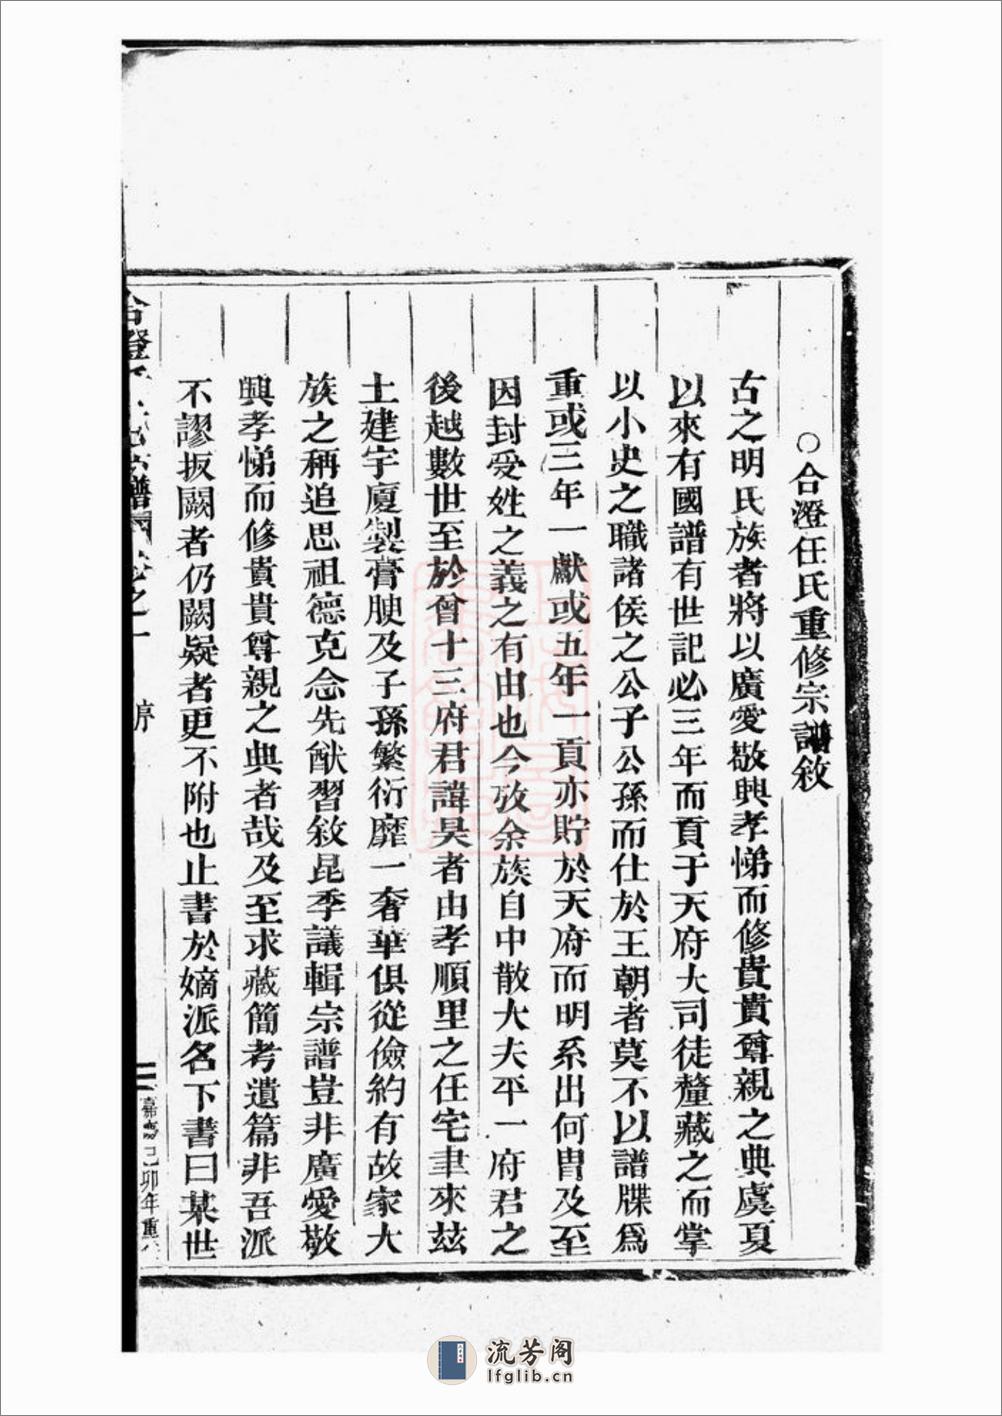 ○合澄任氏重修宗譜敘
古之明氏族者將以廣愛敬興孝悌而修貴貴尊親之典虞夏
以來有國譜有世記必三年而貢于天府大司徒釐藏之而掌
以小史之職諸侯之公子公孫而仕於王朝者莫不以譜牒爲
重或三年一獻或五年一貢亦貯於天府而明系出何胄及至
因封受姓之義之有由也今攷余族自中散大夫平一府君之
後越數世至於曾十三府君諱昊者由孝順里之任宅聿來茲
土建宇廈製膏腴及子孫繁衍靡一奢華俱從儉約有故家大
族之稱追思祖德克念先猷習敘昆季議輯宗譜豈非廣愛敬
興孝悌而修貴貴尊親之典者哉及至求藏簡考遺篇非吾派
不謬扳闕者仍闕疑者更不附也止書於嫡派名下書曰某世
合澄
譜
卷之一
序
嘉慶己卯年重
流芳阁
lfglib.cn